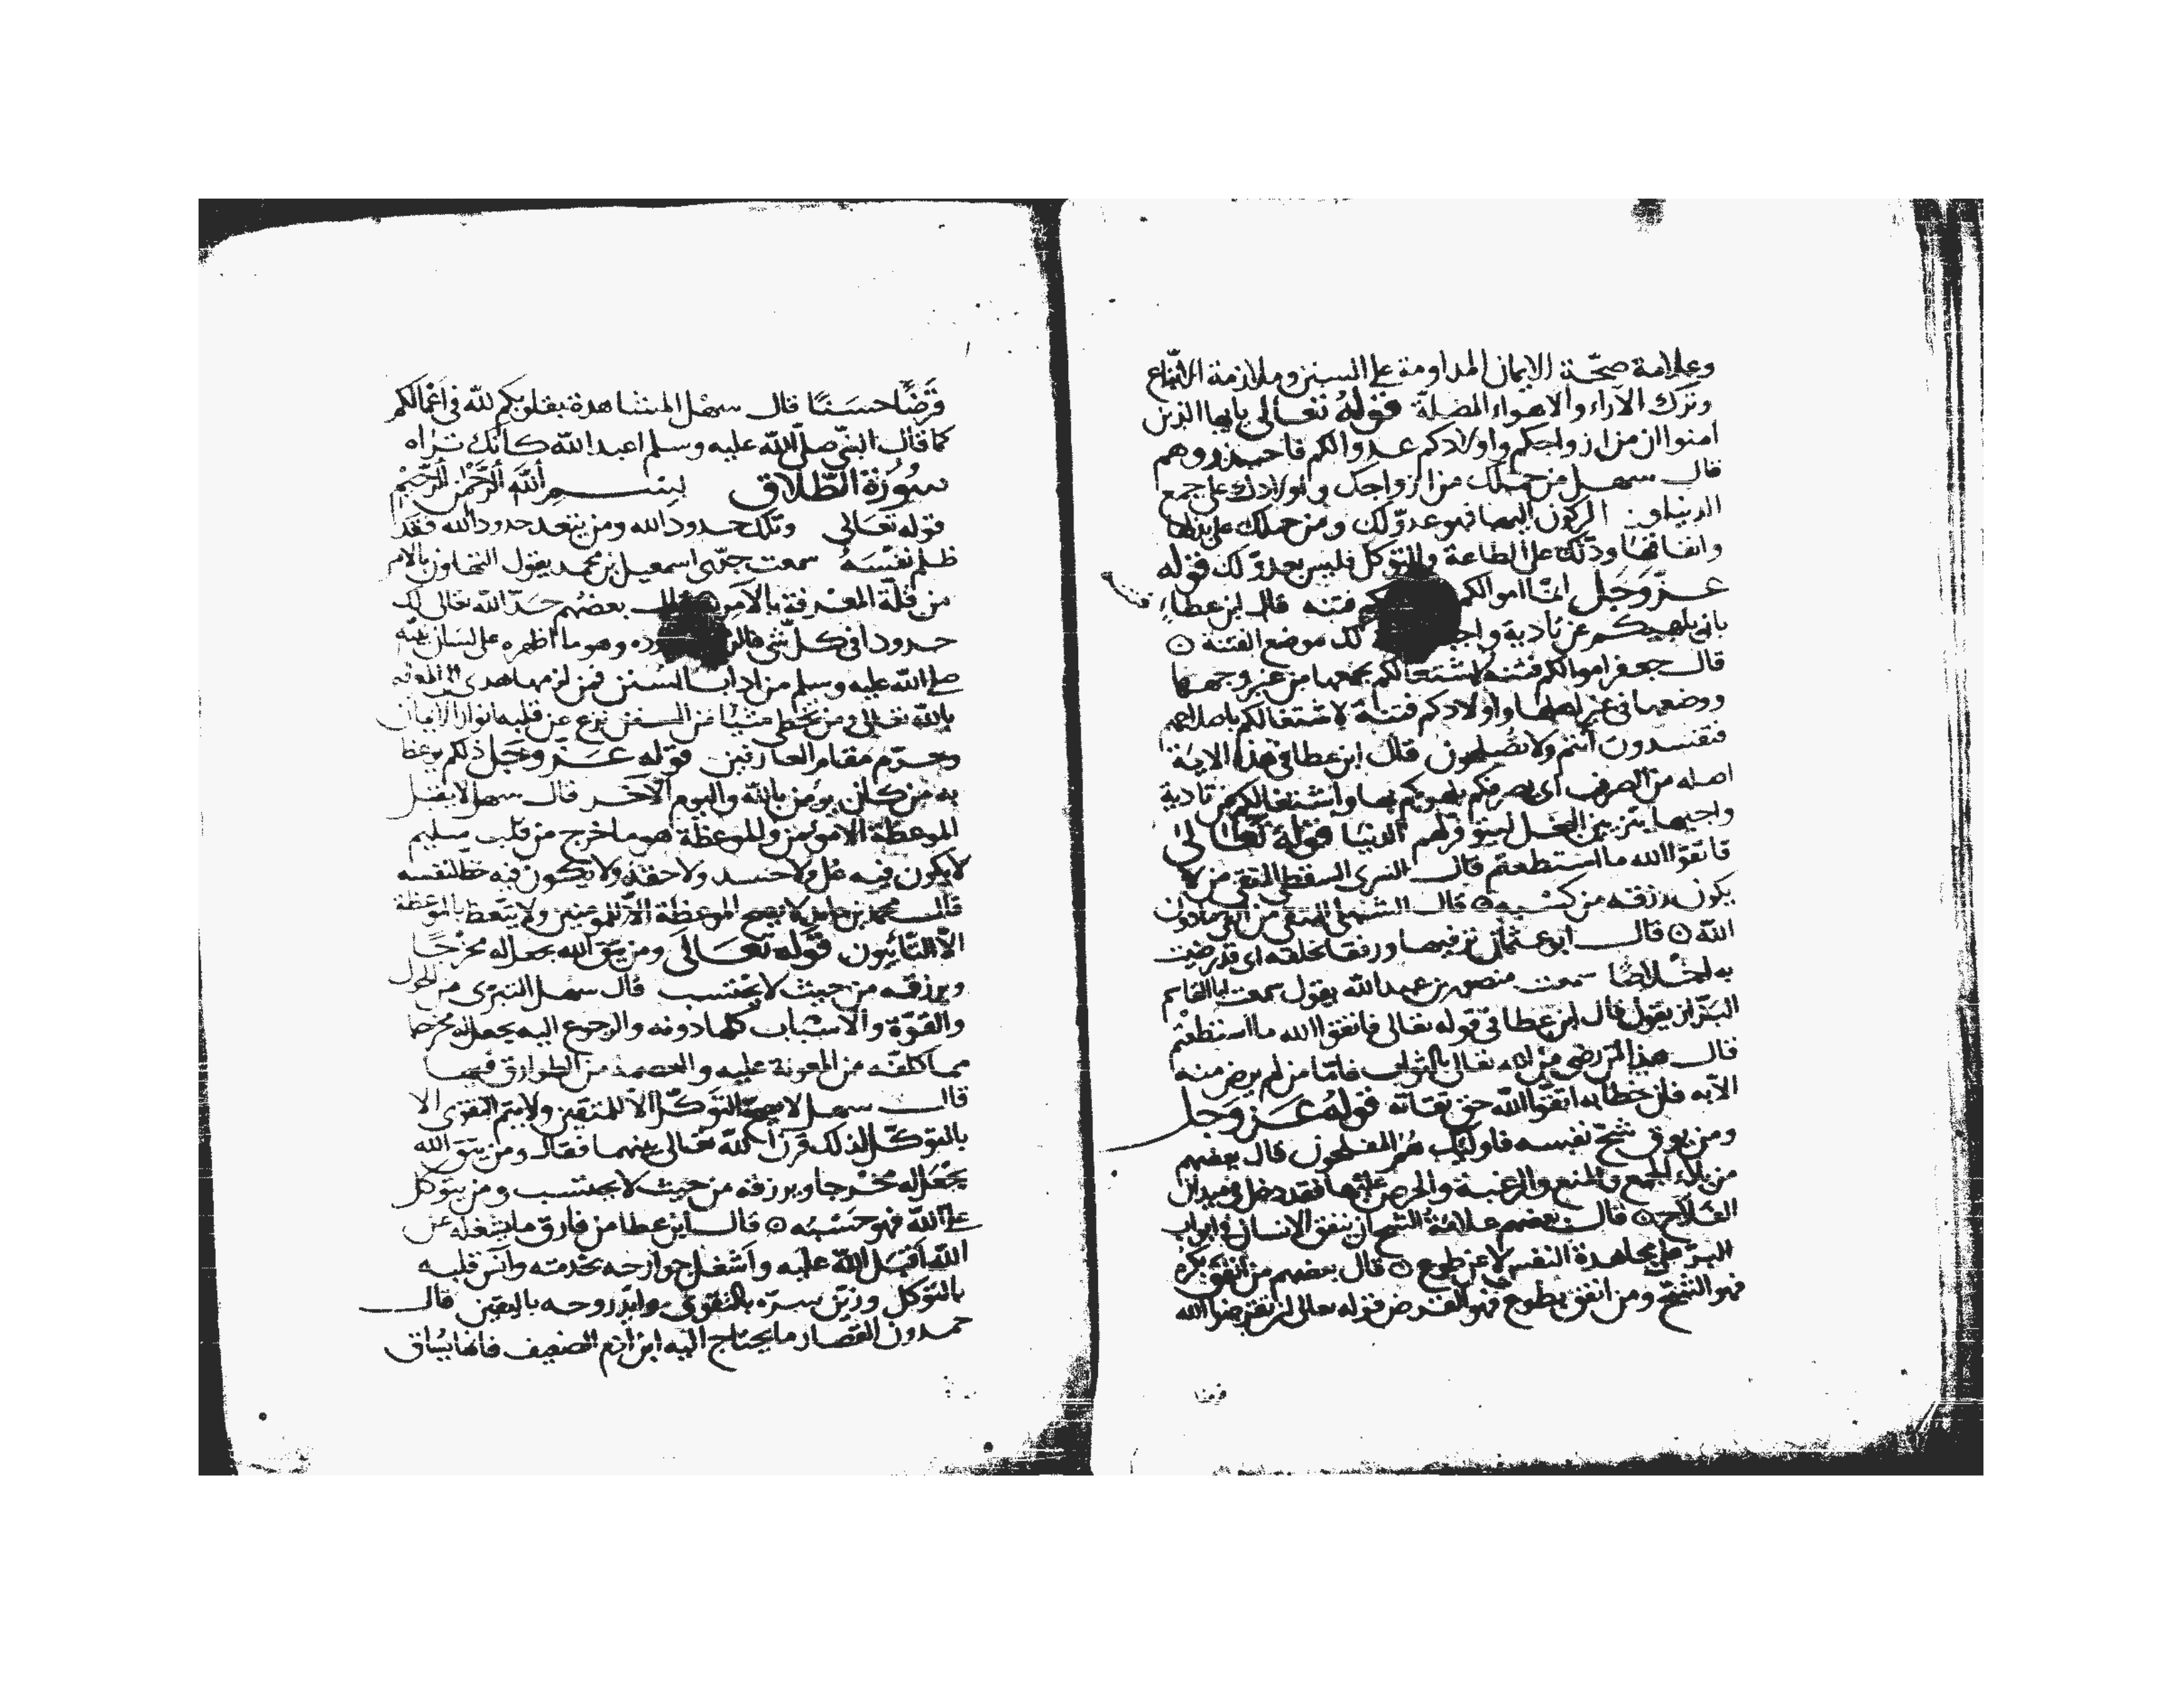 وعلامة صحّة الايمان المداومة على السنن وملازمة الاتّباع
وترك الآراء والاهواء المضلّة قوله تعالى يا يها الذين
امنوا ان من ازواجكم واولادكم عدوا لكم فاحذروهم
قال سهل من حملك من ازواجك واولادك على جمع
الدنيا و الركون اليها فهو عدوّ لك ومن حملك على بذلها
وانفاقها ودلّك على الطاعة والتوكل فليس بعدوّ لك قوله
عزّ وَجَل انّما اموالكم فتنه قال ابن عطا
بان يلهيكم عن تادية واجب لك موضع الفتنة
قال جعفر اموالكم فتنه لاشتغالكم بجمعها من غير وجهها
ووضعها فى غير اهلها واولادكم فتنة لاشتغالكم باصلاحهم
فتفسدون أنتم ولا تصلحون قال ابن عطا فى هذه الاية
اصله من الصرف اى يصرفكم بلهوكم بها واشتغالكم عن تادية
واجبها الدنيا قوله تعَالى
فاتقوا الله ما استطعتم قال السرى السقطى المتقى من لا
يكون رزقه من كسبه قال الشبلى المتقى من اتقى مادون
الله قال ابو عثمان
به اخلاصًا سمعت منصور بن عبد الله يقول سمعت ابا القاسم
البزّاز يقول قال ابن عطا فى قوله تعالى فاتقوا الله ما استطعتم
قال هذا لمن رضى من الله تعالى بالثواب فامّا من لم يرض منه
الّا به فان خطابه اتقوا الله حق تقاته قولهُ عَزّ وَجل
ومن يوق شحّ نفسه فاولئك هُمُ المفلحون قال بعضهم
والمنع والرغبة والحرص عليها فقد دخل فى ميدان
الفلاح قال بعضهم علامة الشح ان ينفق الانسان فى ابواب
البرّ على مجاهدة النفس لا عن طوع قال بعضهم من انفق بكره
فهو الشحّ ومن انفق بطوع فهو القرض قوله تعالى ان تقرضوا الله
قَرضًا حسَنًا قال سهل المشاهدة بقلوبكم لله فى اعْمالكم
كما قال النبّى صلّى الله عليه وسلم اعبد الله كأنّك تراه
سُورَة الطّلاق بسم الله الرّحمن الرّحيم
قوله تعَالى وتلك حدود الله ومن يتعد حدود الله فقد
ظلم نفْسَهُ سمعت جدّى اسمعيل بن محمد يقول التهاون بالامر
من قلّة المعرفة بالآمر بعضهم حدّ الله تعالى لك
حدودا فى كل شى وهو ما اظهره على لسان نبيّه
صلى الله عليه وسلم من اداب السُنن فمن لزمها هدى
بالله تعالى ومن تخطى شيئا من السنن نزع عن قلبه انوار الايمان
وحرّم مقام العارفين قوله عَزّ وجَل ذلكم يوعظ
به من كان يؤمن بالله واليوم الآخر قال سهل لا يقبل
الموعظة الا مومن والموعظة هو ما خرج من قلب سليم
لا يكون فيه غل ولا حسد ولا حقد ولا يكون فيه حظ لنفسه
قال محمد بن حامد لا تصح الموعظة الّا للمومنين ولا يتعظ بالموعظة
الّا التائبون قوله تعَالَى ومن يتق الله يجعل له مخرجًا
ويرزقه من حيث لا يحتسب قال سهل التبرى من الحول
والقوّة والاسباب كلها دونه والرجوع اليه يجعل له مخرجا
مما كلفه من المعونة عليه والعصمة من الطوارق فيها
قال سهل لا يصحّ التوكّل الّا للمتقين ولا يتم التقوى الا
بالتوكّل لذلك قرن الله تعالى بينهما فقال ومن يتق الله
يجْعَل له مخرجا ويرزقه من حيث لا يحتسب ومن يتوكل
على الله فهو حسبه قال ابن عطا من فارق ما يشغله عن
الله اقبَل الله عليه واشغل جوارحه بخدمته وآنس قلبه
بالتوكل وزيّن سرّه بالتقوى وايّد روحه باليقين قال
حمدون القصار ما يحتاج اليه ابن آدم الضعيف فانها يُساق